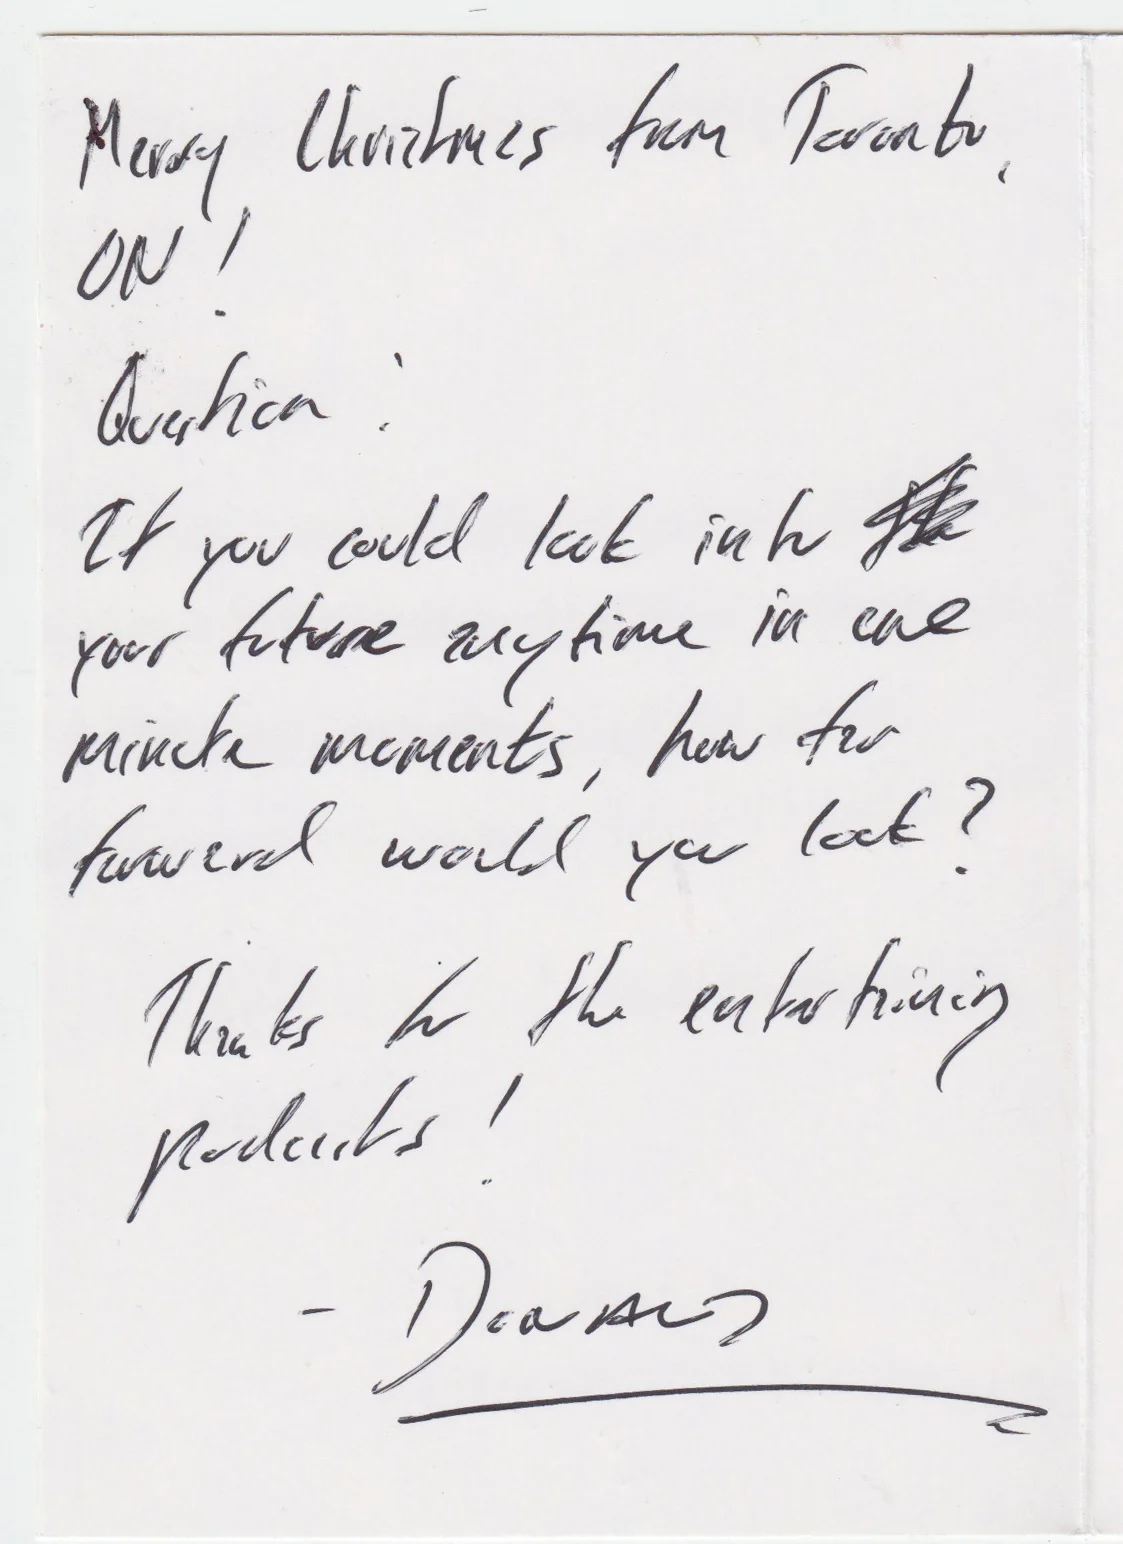 Merry Christmas from Toronto,
ON!
Question:
If you could look into
your future anytime in one
minute moments, how far
forward would you look?
Thanks for the entertaining
podcasts!
- Donald